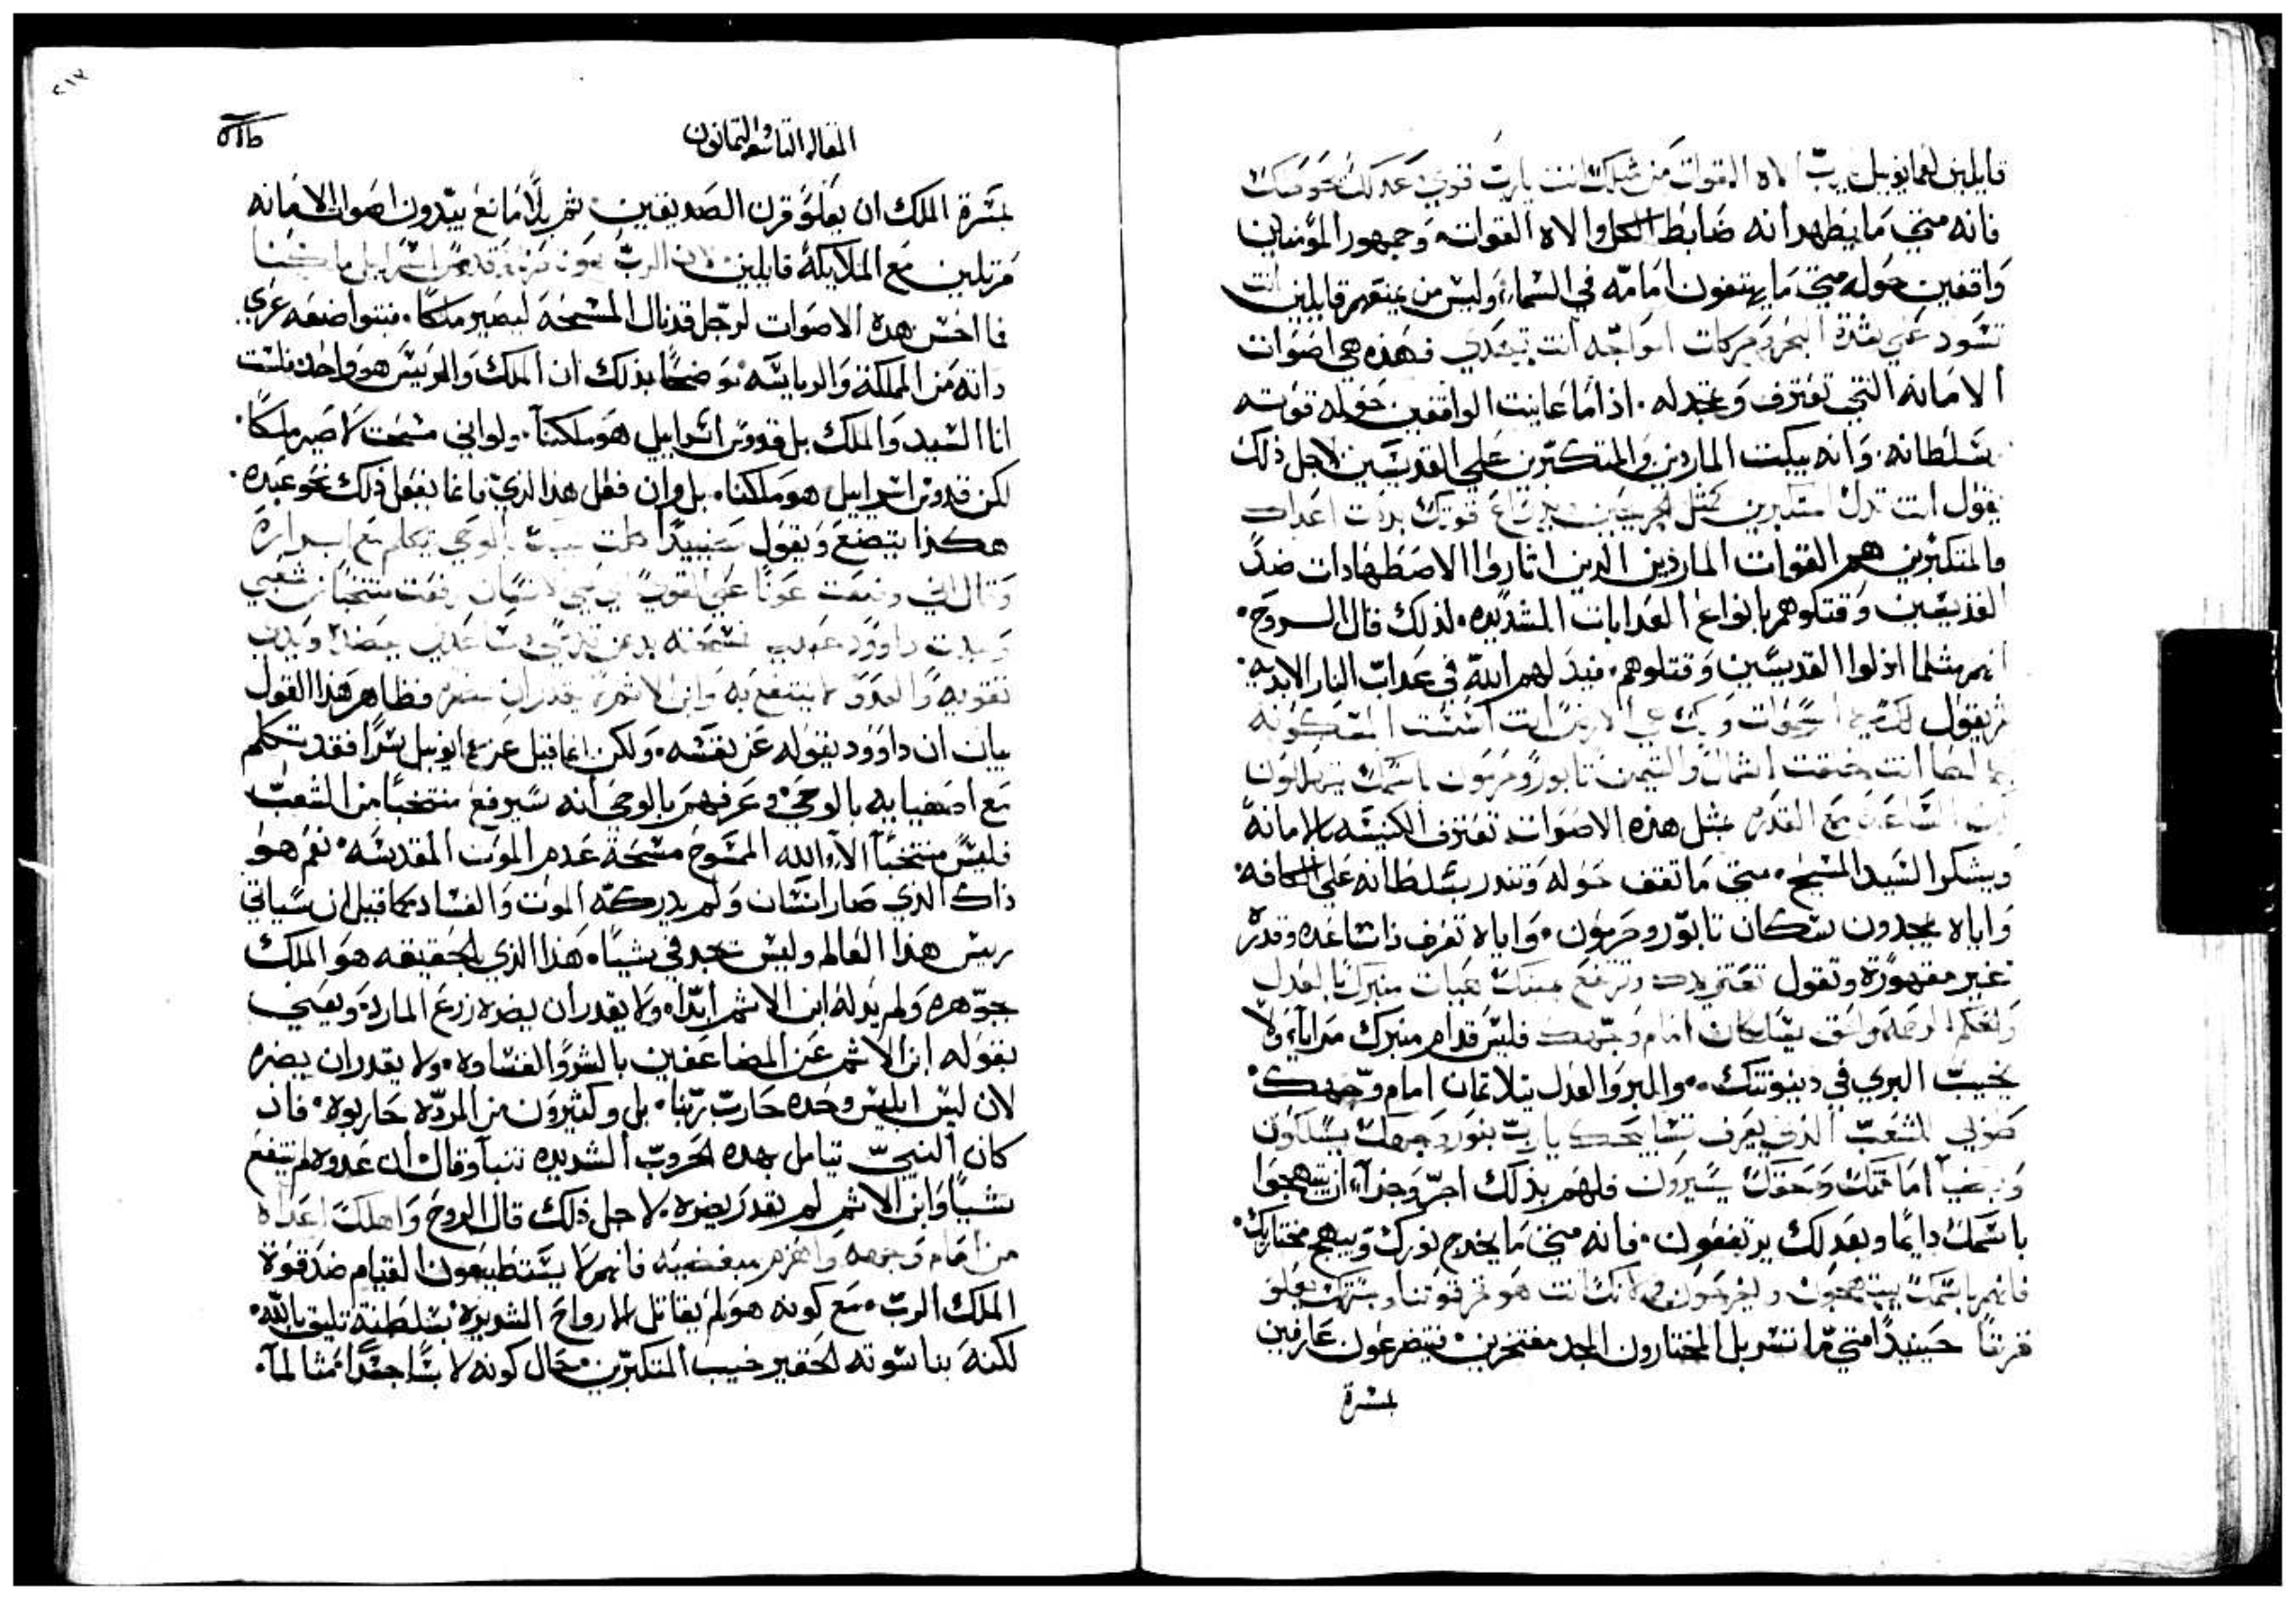 قايلين لعمانوييل يا رب الاه القوات من مثلك انت يا رب قوي عدلك نحوصك
فانه متي ما يظهر انه ضابط الكل والاه القوات وجمهور المؤمنين
واقفين حوله متي ما يهتفون امامه في السماء وليس من يمنعهم قايلين انت
تسود علي عزة البحر وحركات امواجه انت تهدي فهذه هي اصوات
الامانه التي تعترف وتمجد له. اذا ما عاينت الواقفين حوله قوته
سلطانه. وانه يبكت الماردين والمتكبرين علي القديسين لاجل ذلك
يقول انت تذل المتكبرين كمثل الجريحين بذراع قوتك بددت اعداك
فالمتكبرين هم القوات الماردين الدين اثاروا الاصطهادات ضد
القديسين وقتلوهم بانواع العدابات الشديده. لذلك قال الروح.
انهم مثلما اذلوا القديسين وقتلوهم. فيذلهم الله في عداب النار الابديه.
ثم يقول لك هي السموات ولك هي الارض انت اسست المسكونه
انت خلقت الشمال والتيمن تابور وحرمون باسمك يتهللون
لك الساعد مع القدره بمثل هذه الاصوات تعترف الكنيسه بالامانه
ويشكر السيد المسيح. متي ما تقف حوله وتندر بسلطانه علي الكافه.
واياه يمجدون سكان تابور وحرمون. واياه تعرف ذا ساعد وقدره
غير مقهورة وتقول تعتز يدك وترتفع يمينك هيات منبرك بالعدل
والحكم الرحمه والحق يسلكان امام وجهك فليس قدام منبرك مرايا ولا
يخيب البري في دينونتك. والبر والعدل يتلاتمان امام وجهك.
طوبي للشعب الذي يعرف تسابيحك يا رب بنور وجهك يسلكون
اما حقك يسيرون فلهم بذلك اجر وجزاء ان يبتهجوا
باسمك دايما وبعدلك يرتفعون. فانه متي ما يخرج نورك ويبهج مختاريك.
فانهم باسمك يبتهجون ويفرحون لانك انت هو فخر قوتنا وبمسرتك يعلو
قرننا حينيدا متي ما تسربل المختارون المجد مفتخرين. يتضرعون عارفين
لمسرة
المقاله التاسعه والثمانون
لمسرة الملك ان يعلو قرن الصديقين. ثم بلا مانع يبدون اصوات الامانه
مرتلين مع الملايكة قايلين. لان الرب هو ناصرنا وقدوس اسراييل ملكنا
فما احسن هذه الاصوات لرجل قد نال المسيحة ليصير ملكا. فبتواضعه عري
داته من المملكة والرياسه موضحا بذلك ان الملك والرييس هو واحد فلست
انا السيد والملك بل قدوس اسراييل هو ملكنا. ولو اني مسحت لاصير ملكا.
لكن قدوس اسراييل هو ملكنا. بل وان فعل هذا الذي فانما يفعل ذلك نحو عبده.
هكذا يتضع ويقول حينيدا كلمت بنيك بالوحي تكلم مع ابراره
وقال اني وضعت عونا علي القوي رفعت منتخبا من شعبي
وجدت داوود عبدي مسحته بدهن قدسي ساعدي يعضده ويدي
تقويه والعدو لا ينتفع به وابن الاثم لا يقدر ان يضره فظاهر هذا القول
بيان ان داوود يقوله عن نفسه. ولكن انما قيل عن عمانوييل سرا فقد تكلم
مع اصفيايه بالوحي وعرفهم بالوحي انه سيرفع منتخبا من الشعب
فليس منتخبا الا الله الممسوح مسحة عدم الموت المقدسه. نعم هو
ذاك الذي صار انسان ولم يدركه الموت والفساد كما قيل ان سياتي
رييس هذا العالم وليس يجد في شيا. هذا الذي بالحقيقه هو الملك
جوهره ولم يدله ابن الاثم ابدا. ولا يقدر ان يضره زرع المارد. ويعني
بقوله ابن الاثم عن المضاعفين بالشر والقساوه. ولا يقدر ان يضره
لان ليس ابليس وحده حارب ربنا. بل وكثيرون من المرده حاربوه. فاذ
كان النبي يتامل بهده الحروب الشديده تنبا وقال ان عدوه لم ينتفع
شيا وابن الاثم لم يقدر يضره. لاجل ذلك قال الروح واهلك اعداه
من امام وجهه واهزم مبغضيه فانهم لا يستطيعون القيام ضد قوة
الملك الرب. مع كونه هو لم يقاتل الارواح الشديدة بسلطنة تليق بالله.
لكنه بناسوته الحقير خيب المتكبرين. حال كونه لابسا جسدا متالما.